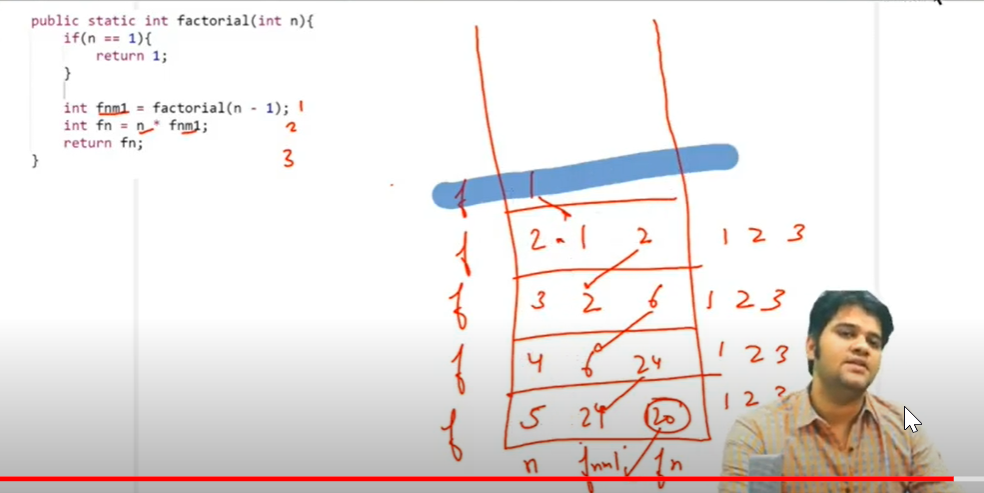 public static int factorial(int n){
if(n == 1){
return 1;
}
int fnm1 = factorial(n - 1); 1
int fn = n * fnm1; 2
return fn;
3
}
f 1
f 2 1 2 1 2 3
f 3 2 6 1 2 3
f 4 6 24 1 2 3
f 5 24 120 1 2
n fnm1 fn